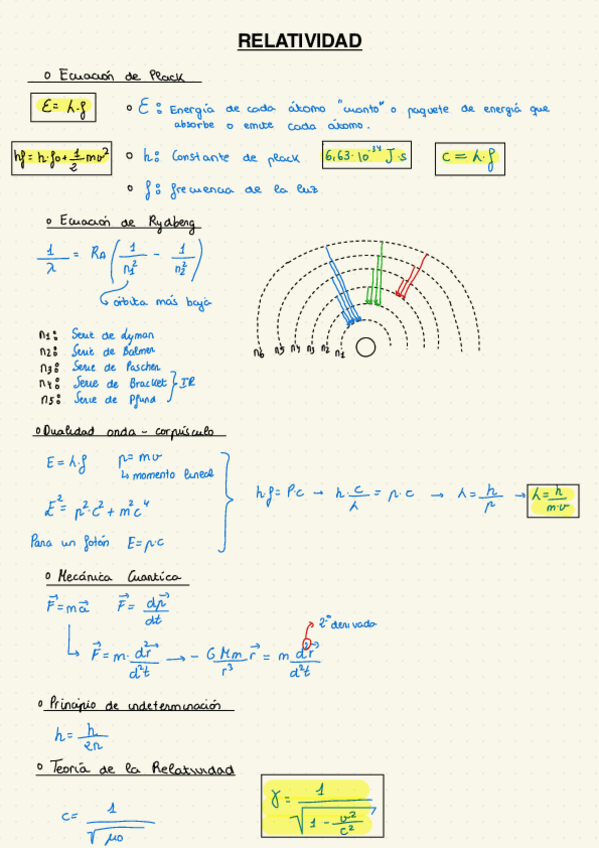 RELATIVIDAD
o Ecuación de Plack
E = h·f
o E: Energía de cada átomo "cuanto" o paquete de energía que
absorbe o emite cada átomo.
hf = h·f0 + 1/2 mv²
o h: Constante de plack
6,63·10⁻³⁴ J·s
c = λ·f
o f: frecuencia de la luz
o Ecuación de Rydberg
1/λ = RA (1/n1² − 1/n2²)
órbita más baja
n1: Serie de Lyman
n2: Serie de Balmer
n3: Serie de Paschen
n4: Serie de Bracket
n5: Serie de Pfund
IR
n6 n5 n4 n3 n2 n1
o Dualidad onda - corpúsculo
E = h·f p = mv
↳ momento lineal
E² = p²·c² + m²c⁴
Para un fotón E = p·c
hf = P·c → h·c/λ = p·c → λ = h/p → λ = h/m·v
o Mecánica Cuantica
F = ma F = dp/dt
2ª derivada
↳ F = m·d²r/d²t → − GMm/r³ r = m d²r/d²t
o Principio de indeterminación
h = h/2π
o Teoría de la Relatividad
c = 1/√μo
γ = 1/√(1 − v²/c²)